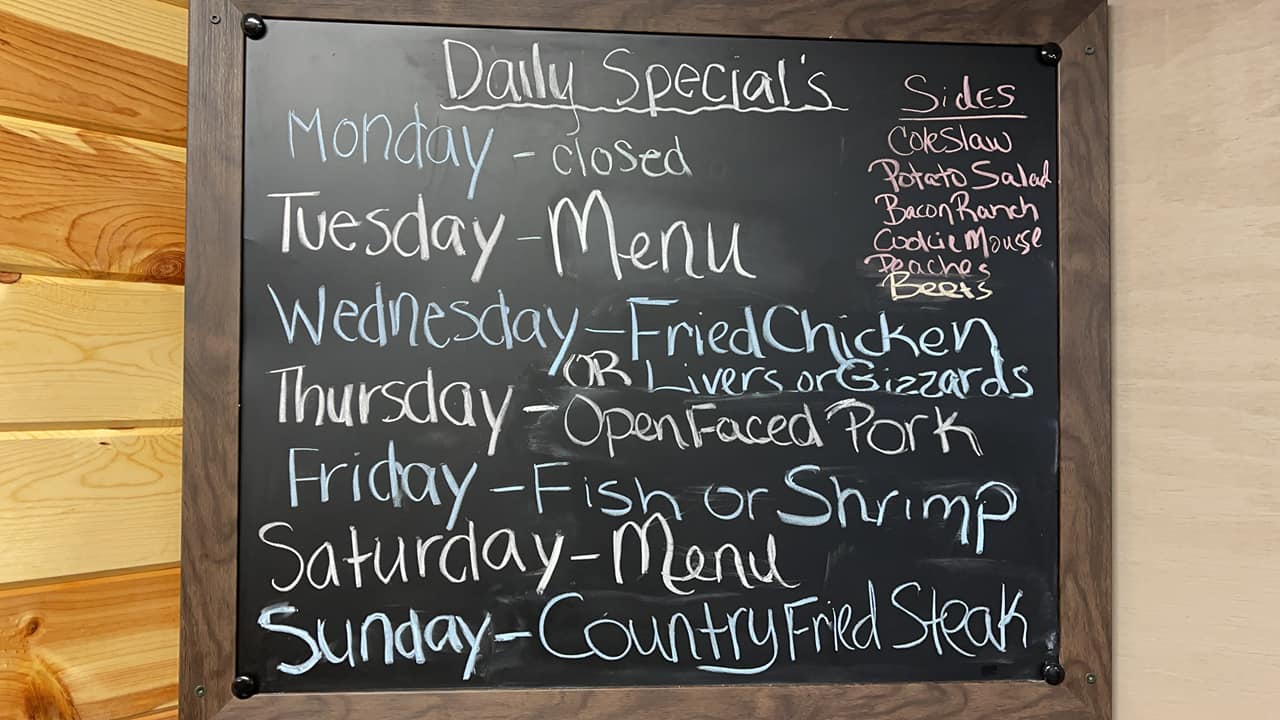 Daily Special's
Monday - closed
Tuesday - Menu
Wednesday - Fried Chicken
OR Livers or Gizzards
Thursday - Open Faced Pork
Friday - Fish or Shrimp
Saturday - Menu
Sunday - Country Fried Steak
Sides
Coleslaw
Potato Salad
Bacon Ranch
Cookie Mouse
Peaches
Beets